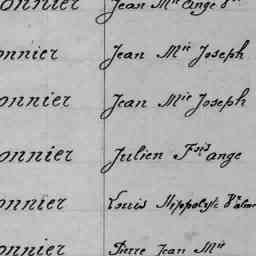 onnier Jean Mie Ange
onnier Jean Mie Joseph
onnier Jean Mie Joseph
onnier Julien Fois ange
onnier Louis Hippolyte
onnier Pierre Jean Mie